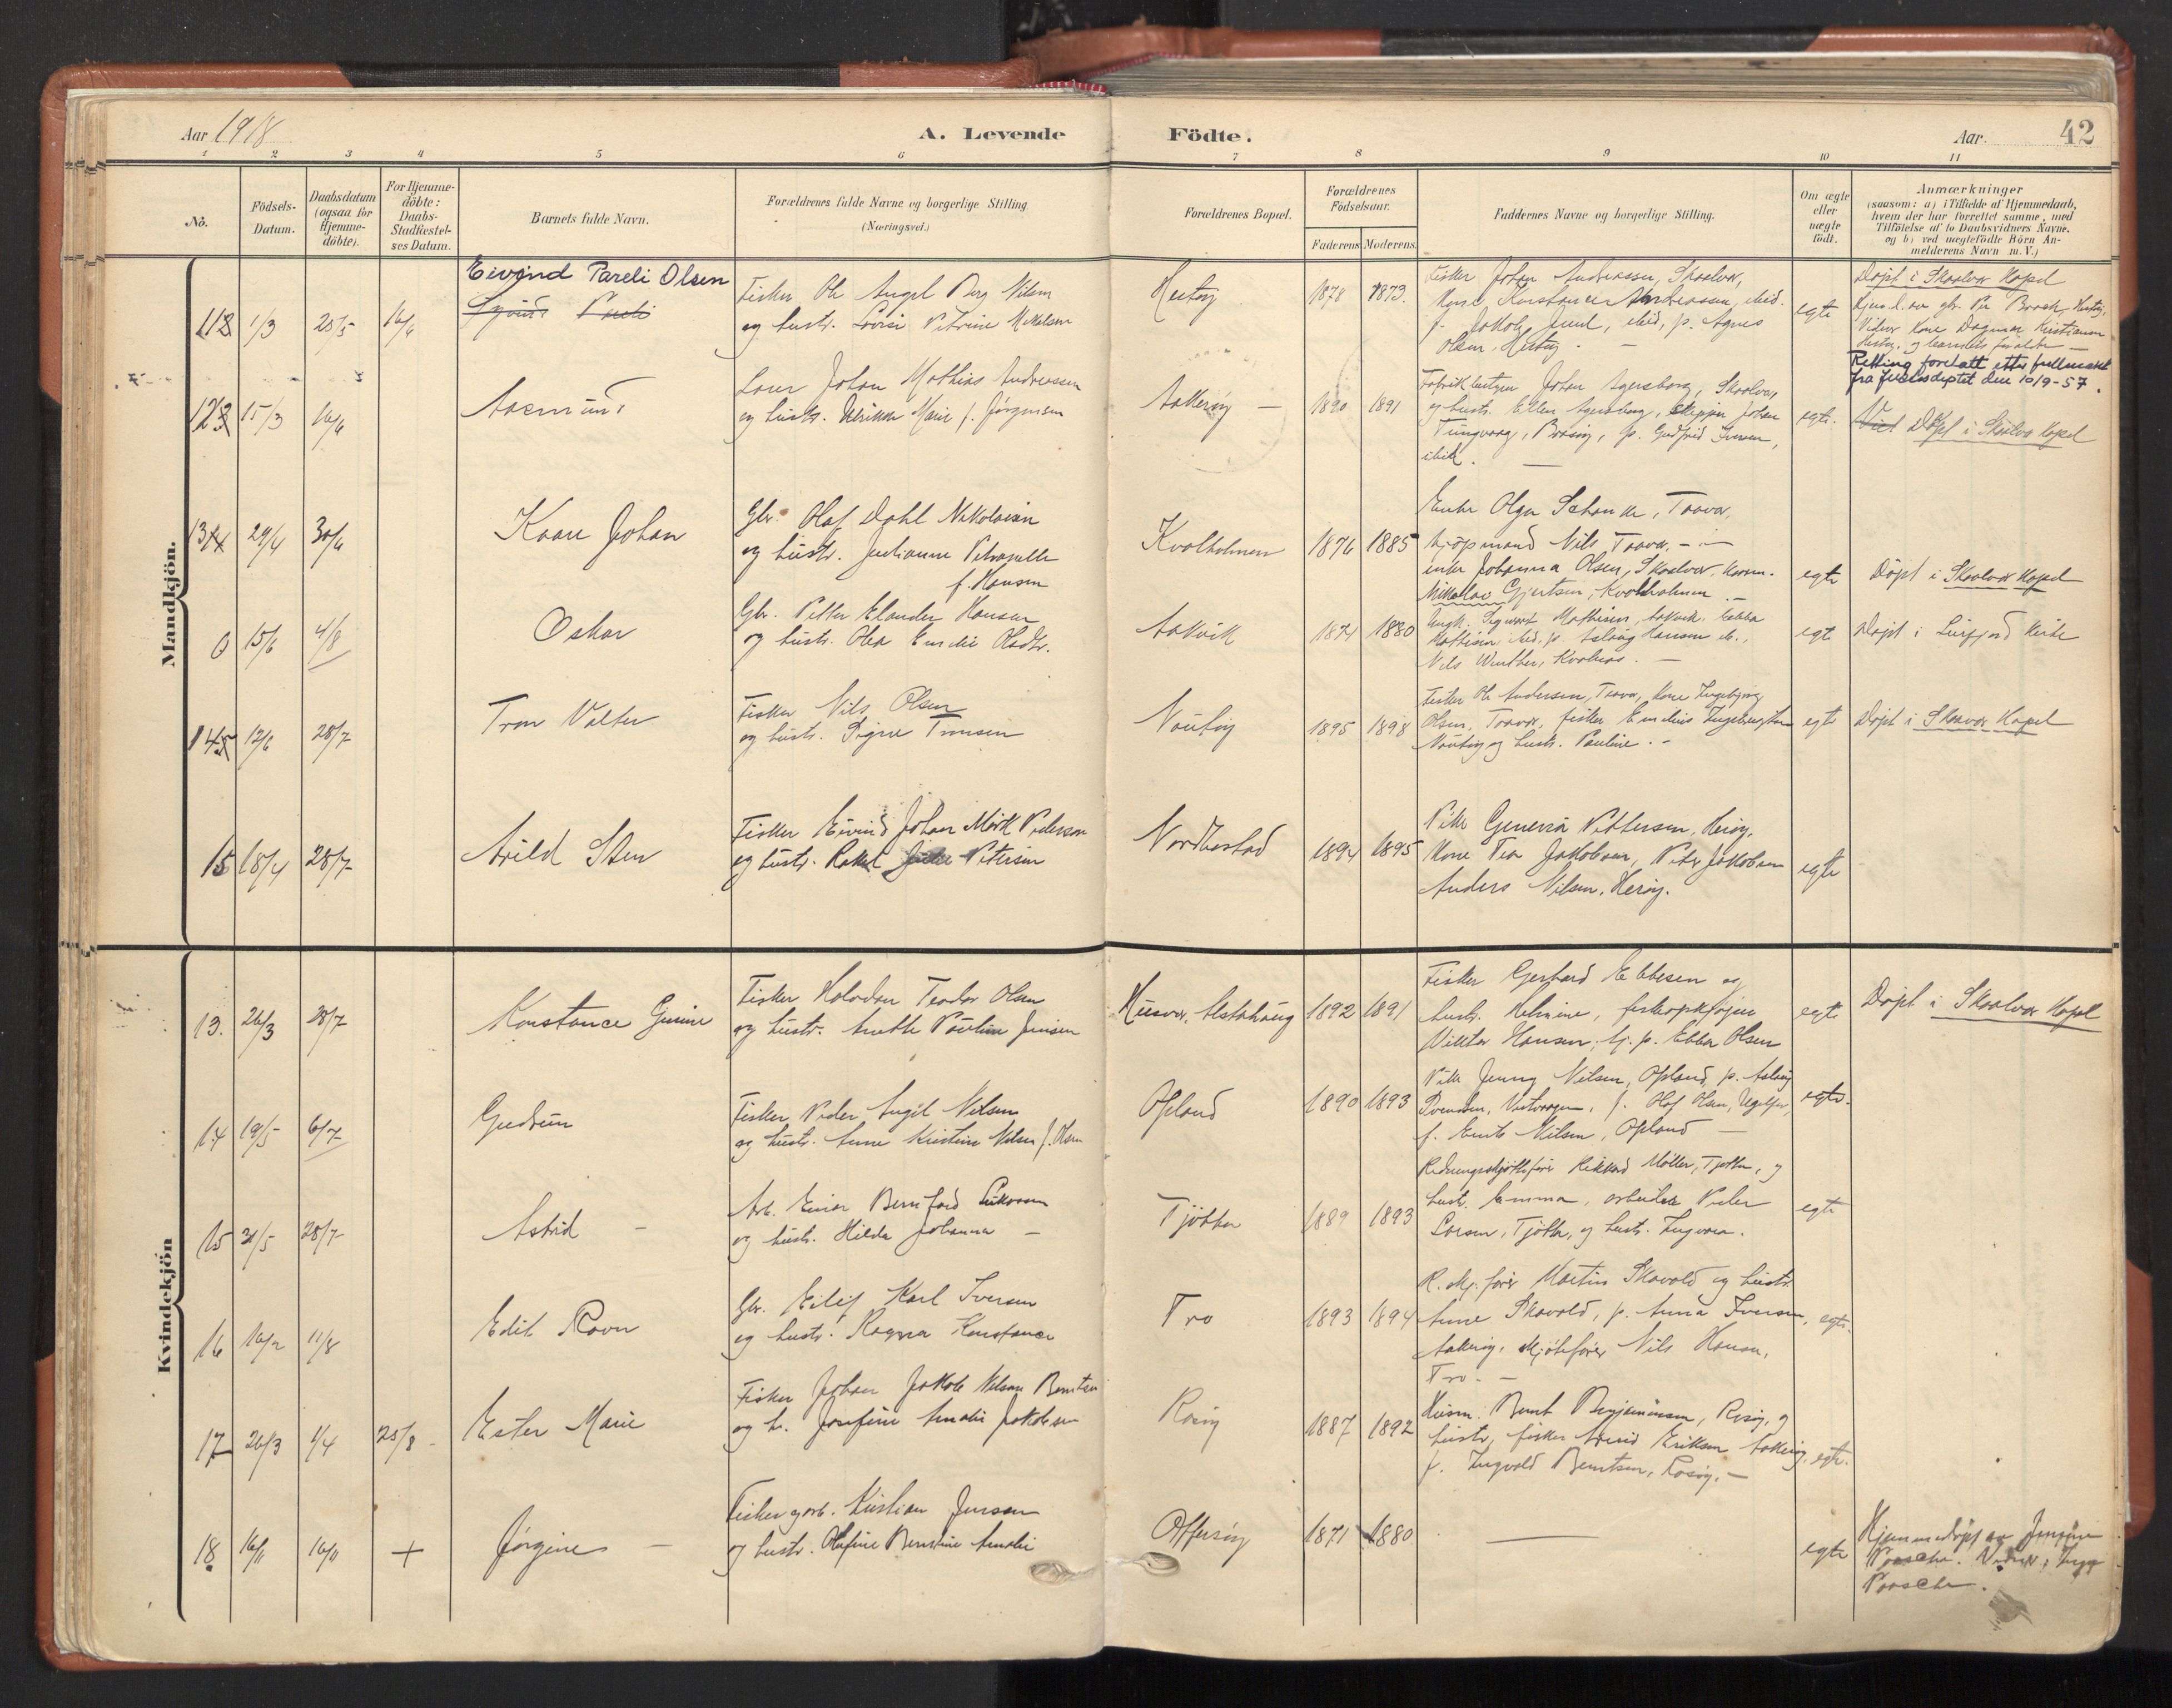 Aar 1918
A. Levende
Födte.
Aar
42
1 2 3 4 5 6 7 8 9 10 11
No.
Födsels-
Datum.
Daabsdatum
(ogsaa for
Hjemme-
döbte).
For Hjemme-
döbte:
Daabs-
Stadfæstel-
ses Datum.
Barnets fulde Navn.
Forældrenes fulde Navne og borgerlige Stilling
(Næringsvei.)
Forældrenes Bopæl.
Forældrenes
Födselsaar.
Faderens Moderens
Faddernes Navne og borgerlige Stilling.
Om ægte
eller
uægte
födt.
Anmærkninger
(saasom: a) i Tilfælde af Hjemmedaab,
hvem der har forrettet samme, med
Tilföielse af to Daabsvidners Navne,
og b) ved uægtefödte Börn An-
melderens Navn m. V.)
Mandkjön.
Eivind Pareli Olsen
1/3 25/5 16/6
Fisker Ole Angel Berg Nilsen
og hustr. Lovise Petrine Mikalsen
Hestøy
1878 1873.
Fisker Johan Andreassen, Skaalvær,
Kone Konstance Andreassen, ibid.
f. Jakob Juul, ibid, p. Agnes
Olsen, Hestøy. –
egte
Døpt i Skaalvær Kapel
Retting foretatt etter fullmakt
fra justisdeptet den 10/9-57.
12 15/3 16/6
Aasmund
Johan Mathias Andreassen
og hustr. Ulrikke Marie f. Jørgensen
Aakerøy –
1890 1891
Johan Agersborg, Skaalvær,
og hustr. Ellen Agersborg, skipper Johan
Tungvaag, Brasøy, p. Gudfrid Iversen,
ibid. –
egte.
Døpt i Skaalvær Kapel
13 29/4 30/6
Kaare Johan
Gbr. Olaf Dahl Nikolaisen
og hustr. Julianne Petronelle
f. Hansen
Kvalholmen
1876 1885
Enke Olga Schanke, Traavær,
kjøpmand Nils Traavær, –
enke Johanna Olsen, Skaalvær,
Nikolai Gjertsen, Kvalholmen. –
egte
Døpt i Skaalvær Kapel
0 15/6 4/8
Oskar
Gbr. Petter Elander Hansen
og hustr. Olea Emelie Olsdtr.
Aakvik
1874 1880
Ungk. Sigurd Mathisen, Aakvik,
Mathisen, ibid, p. Aslaug Hansen ib.,
Nils Winther, Kvalnes. –
egte
Døpt i Leirfjord Kirke
14 12/6 28/7
Tron Valter
Fisker Nils Olsen
og hustr. Signe Tronsen
Nautøy
1895 1898
Fisker Ole Andersen, Traavær, Kone Ingebjørg
Olsen, Traavær, fisker Emelius Ingebrigtsen
Nautøy og hustr. Pauline. –
egte
Døpt i Skaavær Kapel
15 18/4 28/7
Arild Sten
Fisker Eivind Johan Mørk Pedersen
og hustr. Rakel Julie Petersen
Nordbostad
1894 1895
Pike Genevia Pettersen, Herøy,
Kone Tea Jakobsen, Peter Jakobsen
Anders Nilsen, Herøy.
egte
Kvindekjön
13. 26/3 28/7
Konstance Gurine
Fisker Halvdan Teodor Olsen
og hustr. Anette Pauline Jensen
Husvær, Alstahaug
1892 1891
Fisker Gerhard Ebbesen og
hustr. Helmine, fiskeopkjøper
Viktor Hansen, hj. p. Ebba Olsen
egte
Døpt i Skaalvær Kapel
14 19/5 6/7
Gudrun
Fisker Peder Angel Nilsen
og hustr. Anne Kristine Nilsen f. Olsen
Opland
1890 1893
Pike Jenny Nilsen, Opland, p. Aslaug
Svendsen, f. Olaf Olsen,
f. Ernst Nilsen, Opland –
egte.
15 21/5 28/7
Astrid –
Arb. Einar Bernhard Lukassen
og hustr. Hilda Johanna –
Tjøtta
1889 1893
Redningsskjøitefører Rikhard Møller, Tjøtta, og
hustr. Emma, arbeider Peder
Larsen, Tjøtta, og hustr. Ingvara.
egte
16 16/2 11/8
Edit Ravn
Gbr. Eilif Karl Iversen
og hustr. Ragna Konstance
Tro
1893 1894
R. skj. fører Martin Skavold og hustr.
Anne Skavold, p. Anna Iversen,
Aakerøy, skjøitefører Nils Hansen,
Tro. –
egte.
17 26/3 1/4 25/8 –
Ester Marie
Fisker Johan Jakob Nilsen Berntsen
og h. Josefine Amalie Jakobsen
Rosøy
1887 1892
Husm. Bernt Benjaminsen, Rosøy, og
hustr, fisker Eriksen Aakerøy,
f. Ingvald Berntsen, Rosøy. –
egte.
18 16/11 16/11 +
Jørgine –
Fisker og arb. Kristian Jensen
og hustr. Olufine Berntine Amalie
Offersøy
1871 1880
egte
Hjemmedøpt av Jensine
Paasche. Vidner: Inga
Paasche.